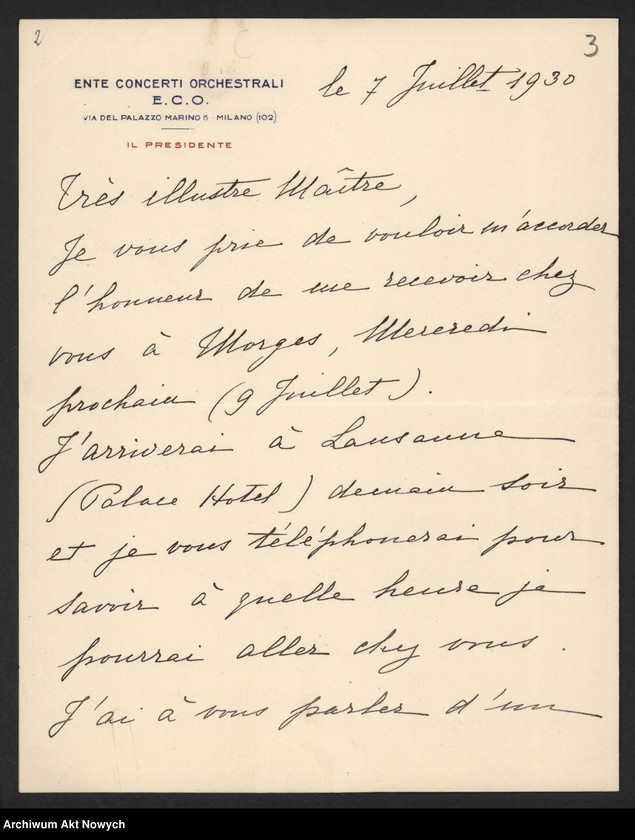 2
3
ENTE CONCERTI ORCHESTRALI
E.C.O.
VIA DEL PALAZZO MARINO 5 MILANO (102)
IL PRESIDENTE
le 7 Juillet 1930
Très illustre Maître,
Je vous prie de vouloir m'accorder
l'honneur de me recevoir chez
vous à Morges, Mercredi
prochain (9 Juillet).
J'arriverai à Lausanne
(Palace Hotel) demain soir
et je vous téléphonerai pour
savoir à quelle heure je
pourrai aller chez vous.
J'ai à vous parler d'un
Archiwum Akt Nowych